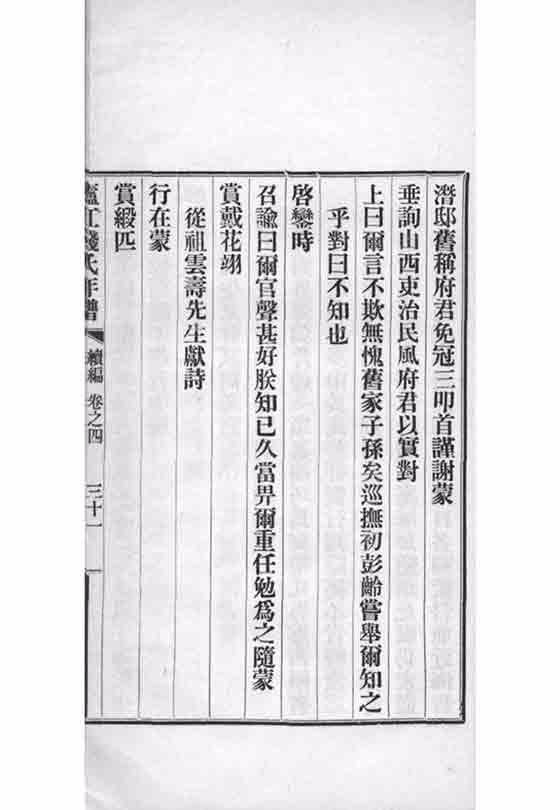 潛邸舊稱府君免冠三叩首謹謝蒙
垂詢山西吏治民風府君以實對
上曰爾言不欺無愧舊家子孫矣巡撫初彭齡嘗舉爾知之
乎對曰不知也
啓鑾時
召諭曰爾官聲甚好朕知已久當畀爾重任勉爲之隨蒙
賞戴花翊
從祖雲壽先生獻詩
行在蒙
賞緞匹
廬江錢氏年譜 續編 卷之四 三十一